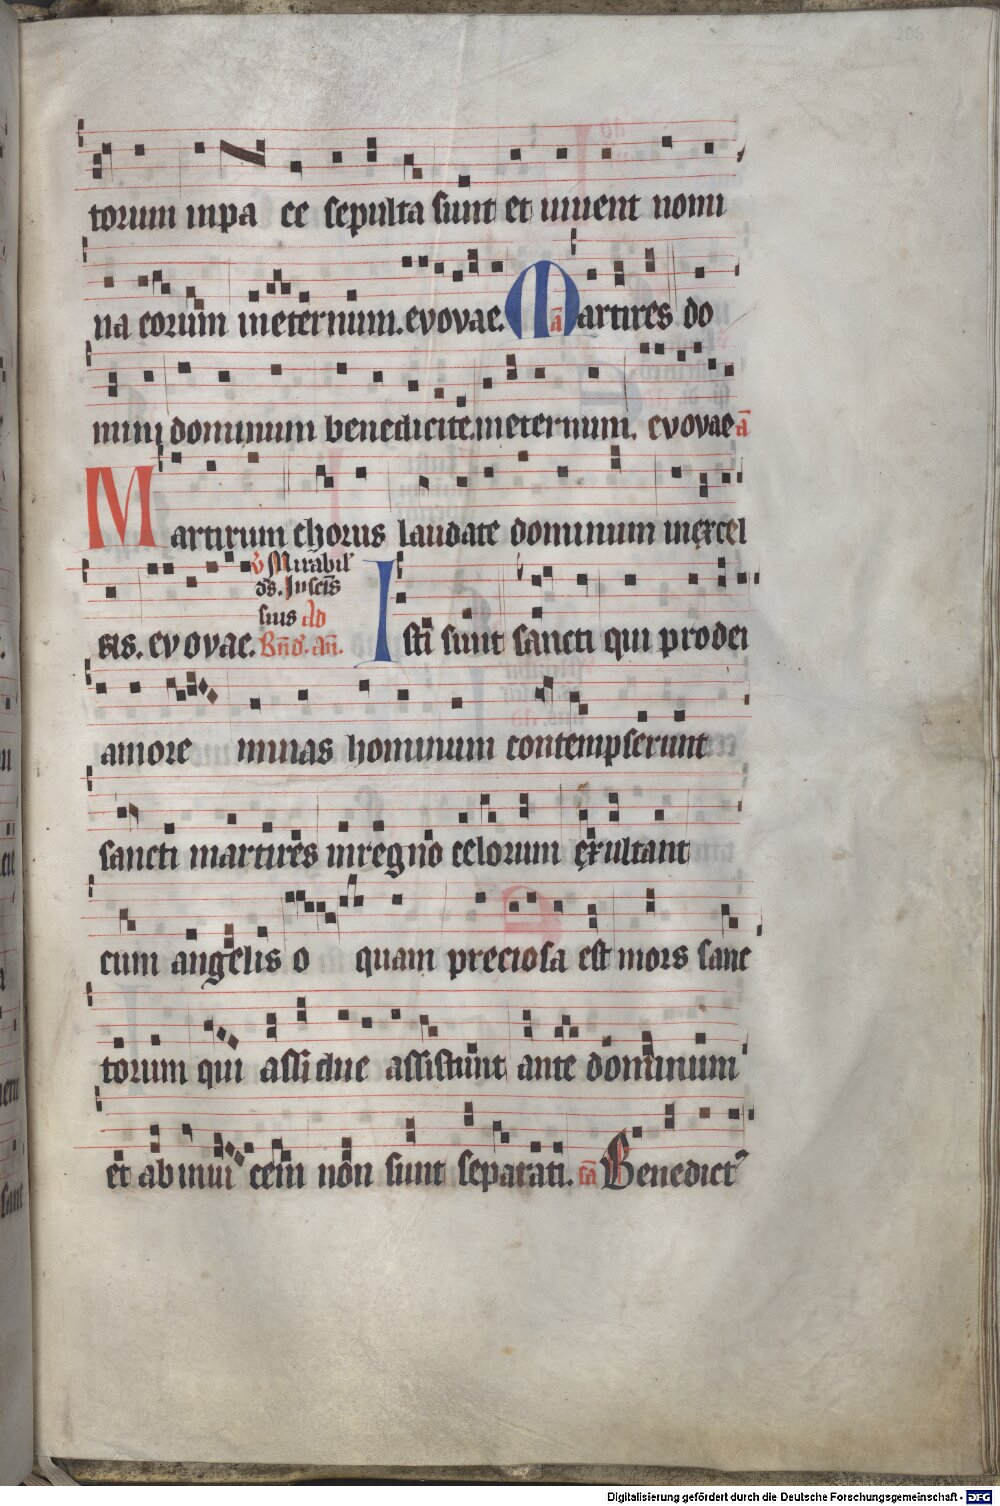 206
torum in pa ce sepulta sunt et viuent nomi
na eorum in eternum. evovae. ā Martires do
mini dominum benedicite. in eternum. evovae ā
Martirum chorus laudate dominum in excel
sis. evovae. v̄ Mirabil'
ds. In scīs
suis ad
Bn̄d'. an̄.
Isti sunt sancti qui pro dei
amore minas hominum contempserunt
sancti martires in regno celorum exultant
cum angelis o quam preciosa est mors sanc
torum qui assidue assistunt ante dominum
et ab inui cem non sunt separati. Benedict'
Digitalisierung gefördert durch die Deutsche Forschungsgemeinschaft - DFG